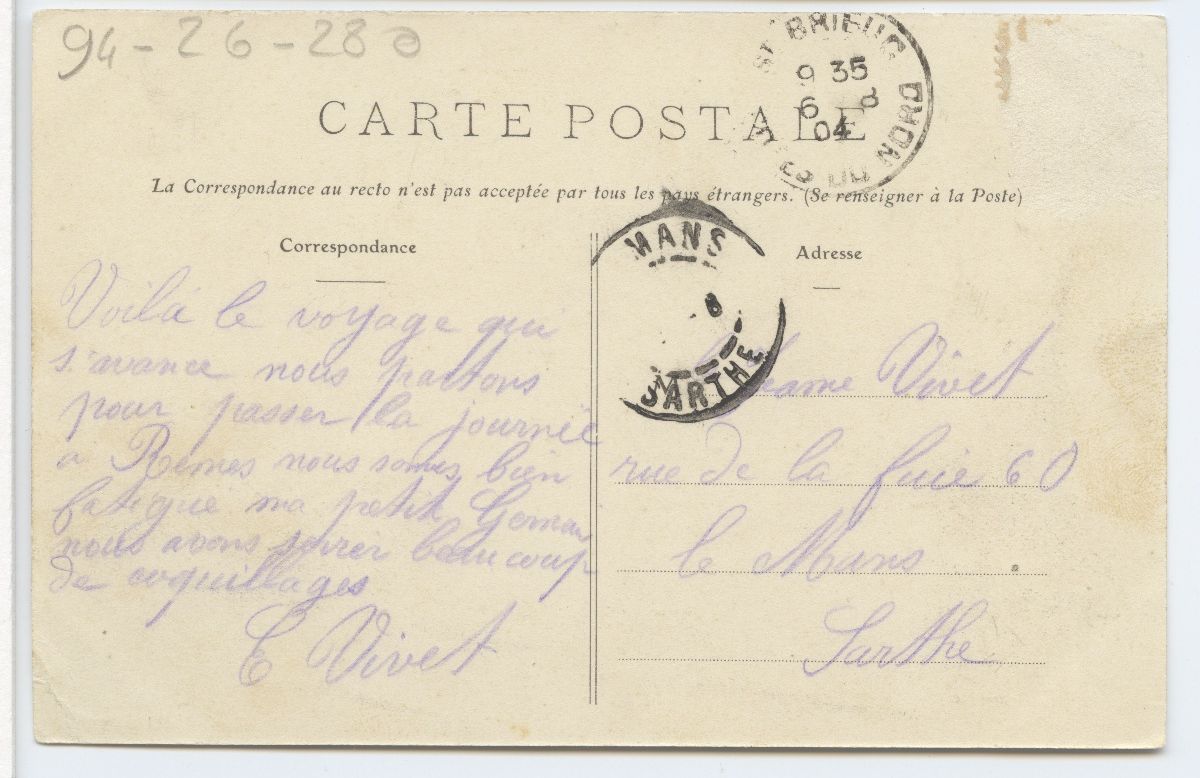 94-26-280
ST BRIEUC
9 35
6 8
04
CÔTES DU NORD
CARTE POSTALE
La Correspondance au recto n'est pas acceptée par tous les pays étrangers. (Se renseigner à la Poste)
MANS
8
SARTHE
Correspondance
Voilà le voyage qui
s'avance nous partons
pour passer la journée
a Renes nous somes bien
fatigue ma petit
nous avons beaucoup
de coquillages
E Vivet
Adresse
Vivet
rue de la fuie 60
le Mans
Sarthe